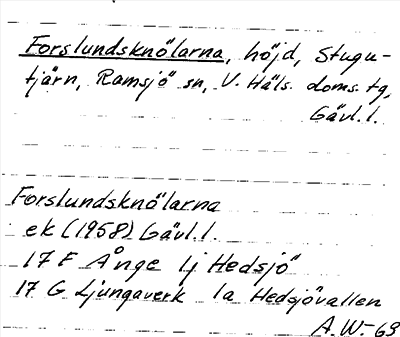 Forslundsknölarna, höjd, Stugu-
tjärn, Ramsjö sn, V. Häls. doms. tg,
Gävl. l.
Forslundsknölarna
ek (1958) Gävl. l.
17 F Ånge 1j Hedsjö
17 G Ljungaverk 1a Hedsjövallen
A.W.-63